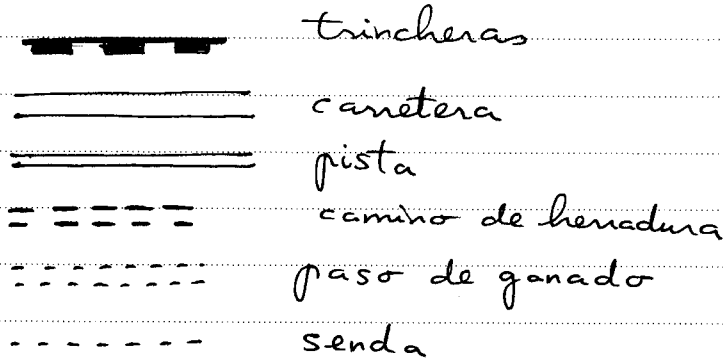 trincheras
carretera
pista
camino de herradura
paso de ganado
senda